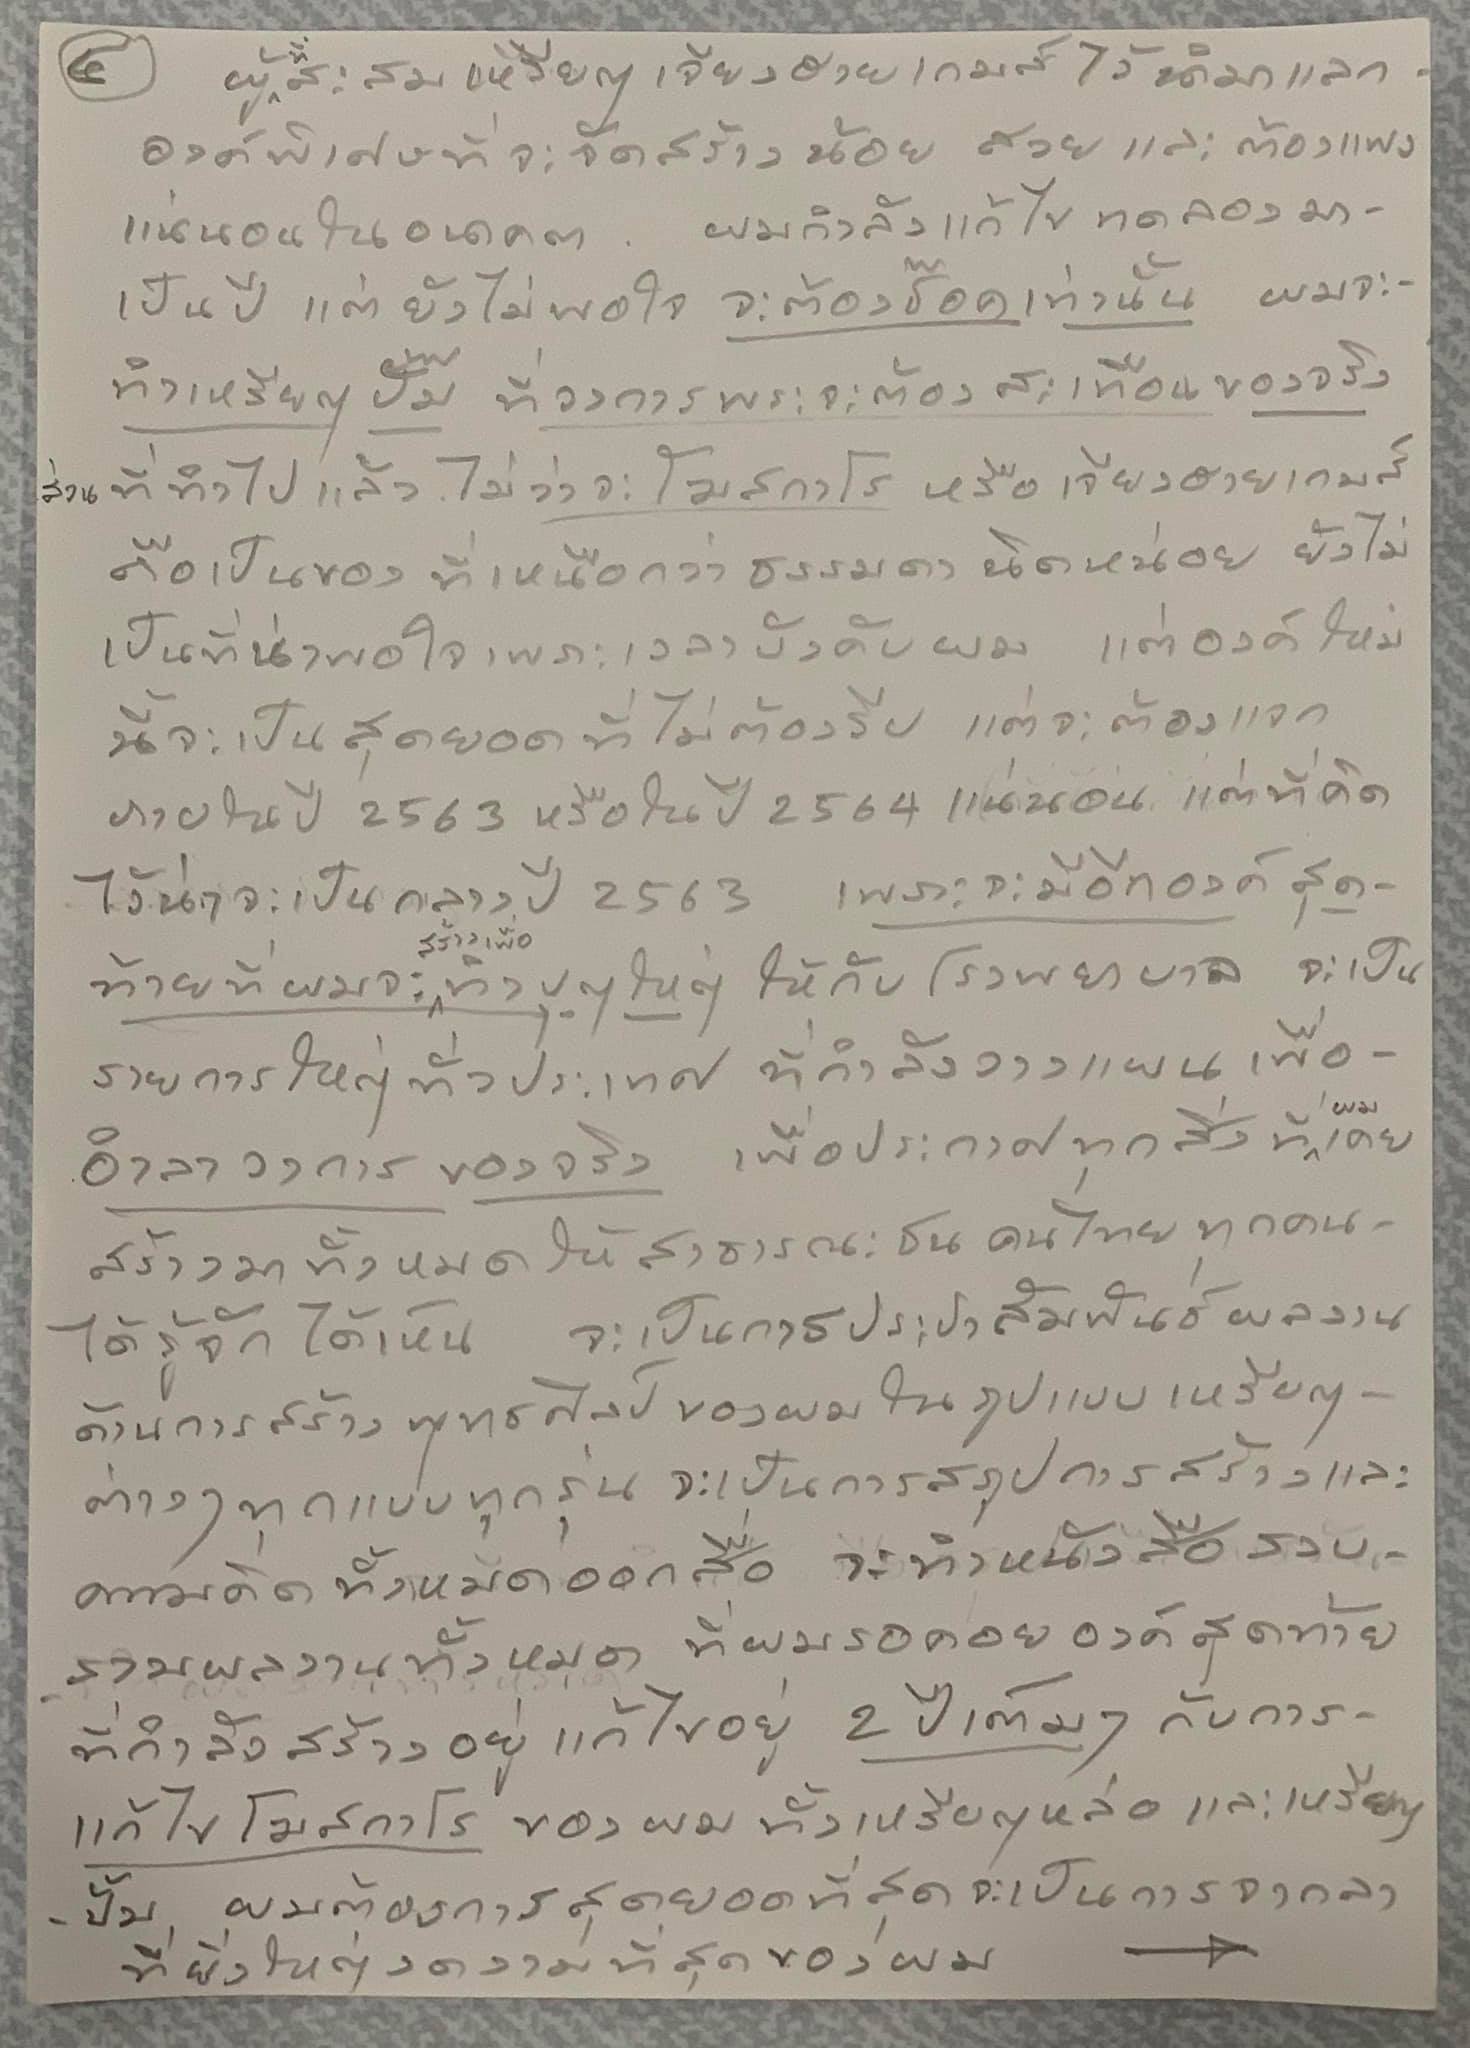 ๕
ผู้ที่สะสมเหรียญเจียงฮายเกมส์ไว้นำมาแลก-
องค์พิเศษที่จะจัดสร้างน้อย สวยและต้องแพง
แน่นอนในอนาคต. ผมกำลังแก้ไขทดลองมา-
เป็นปี แต่ยังไม่พอใจ จะต้องช็อคเท่านั้น ผมจะ-
ทำเหรียญปั๊ม ที่วงการพระจะต้องสะเทือนของจริง
ส่วนที่ทำไปแล้ว ไม่ว่าจะโมสกาโร หรือเจียงฮายเกมส์
ถือเป็นของที่เหนือกว่าธรรมดานิดหน่อย ยังไม่
เป็นที่น่าพอใจเพราะเวลาบังคับผม แต่องค์ใหม่
นี้จะเป็นสุดยอดที่ไม่ต้องรีบ แต่จะต้องแจก
ภายในปี 2563 หรือในปี 2564 แน่นอน แต่ที่คิด
ไว้น่าจะเป็นกลางปี 2563 เพราะจะมีอีกองค์สุด-
ท้ายที่ผมจะสร้างเพื่อทำบุญใหญ่ ให้กับโรงพยาบาล จะเป็น
รายการใหญ่ทั่วประเทศ ที่กำลังวางแผนเพื่อ-
อำลาวงการของจริง เพื่อประกาศทุกสิ่งที่ผมเคย
สร้างมาทั้งหมดให้สาธารณะชนคนไทยทุกคน-
ได้รู้จัก ได้เห็น จะเป็นการประชาสัมพันธ์ผลงาน
ด้านการสร้างพุทธศิลป์ของผมในรูปแบบเหรียญ-
ต่างๆทุกแบบทุกรุ่น จะเป็นการสรุปการสร้างและ
ความคิดทั้งหมดออกสื่อ จะทำหนังสือรวบ-
รวมผลงานทั้งหมด ที่ผมรอคอยองค์สุดท้าย
ที่กำลังสร้างอยู่แก้ไขอยู่ 2 ปีเต็มๆ กับการ-
แก้ไขโมสกาโร ของผมทั้งเหรียญหล่อและเหรียญ
-ปั๊ม ผมต้องการสุดยอดที่สุดจะเป็นการจากลา
ที่ยิ่งใหญ่งดงามที่สุดของผม →